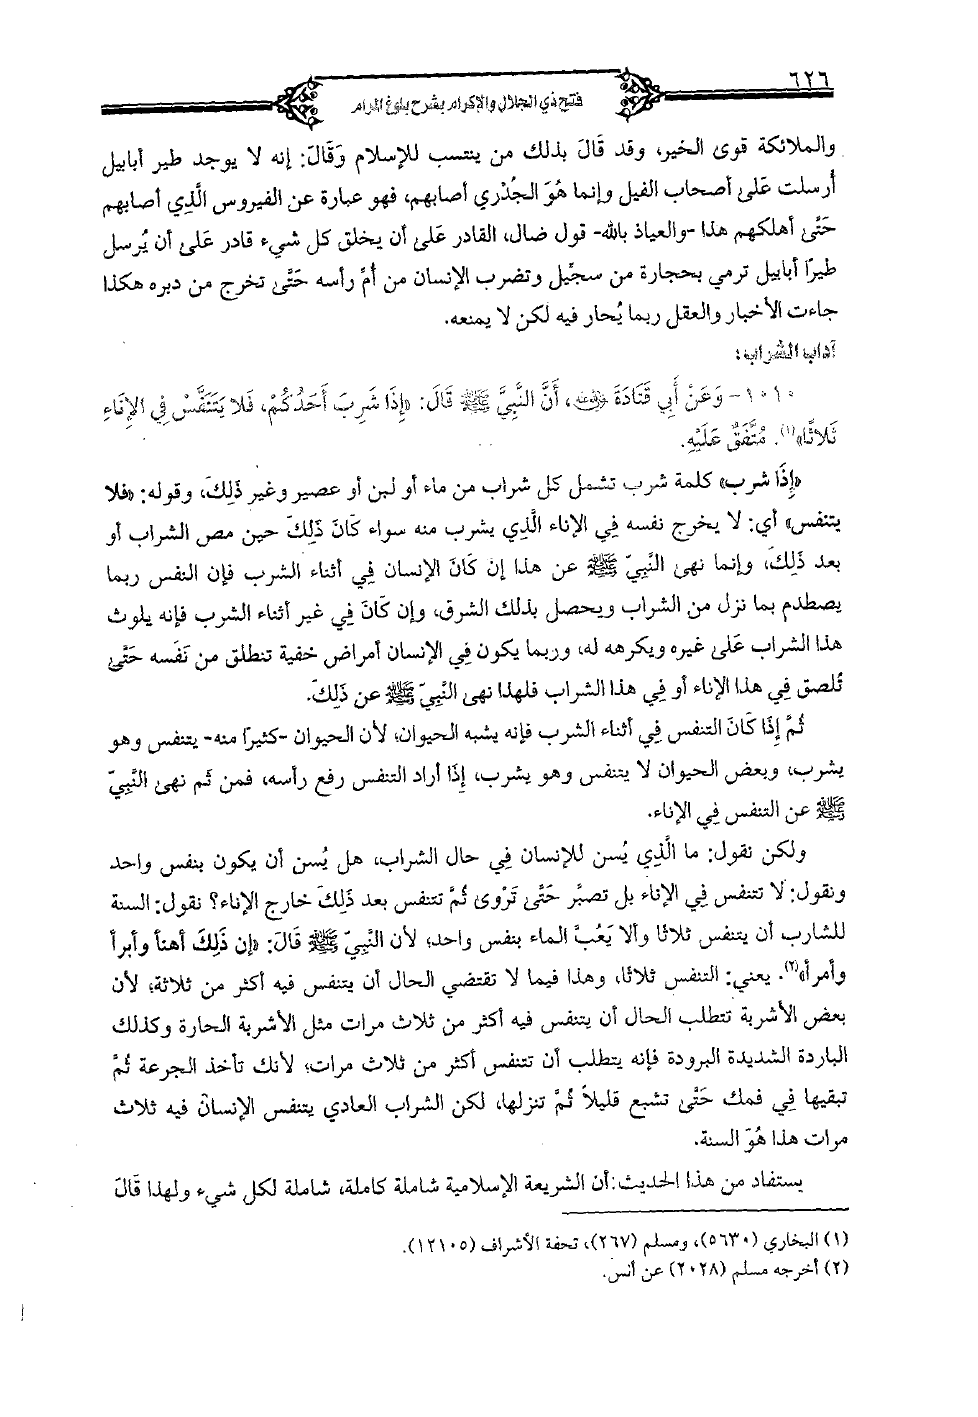 ٦٢٦
فتح ذي الجلال والإكرام بشرح بلوغ المرام
والملائكة قوى الخير، وقد قَالَ بذلك من ينتسب للإسلام وَقَالَ: إنه لا يوجد طير أبابيل
أُرسلت عَلَىٰ أصحاب الفيل وإنما هُوَ الجُدْري أصابهم، فهو عبارة عن الفيروس الَّذِي أصابهم
حَتَّىٰ أهلكهم هذا -والعياذ بالله- قول ضال، القادر عَلَىٰ أن يخلق كل شيء قادر عَلَىٰ أن يُرسل
طيرًا أبابيل ترمي بحجارة من سجِّيل وتضرب الإنسان من أُمِّ رأسه حَتَّىٰ تخرج من دبره هكذا
جاءت الأخبار والعقل ربما يُحار فيه لكن لا يمنعه.
آداب الشراب:
١٠١٠- وَعَنْ أَبِي قَتَادَةَ رضي الله عنه، أَنَّ النَّبِيَّ ﷺ قَالَ: «إِذَا شَرِبَ أَحَدُكُمْ، فَلَا يَتَنَفَّسْ فِي الْإِنَاءِ
ثَلَاثًا»(١). مُتَّفَقٌ عَلَيْهِ.
«إِذَا شرب» كلمة شرب تشمل كل شراب من ماء أو لبن أو عصير وغير ذَلِكَ، وقوله: «فلا
يتنفس» أي: لا يخرج نفسه فِي الإناء الَّذِي يشرب منه سواء كَانَ ذَلِكَ حين مص الشراب أو
بعد ذَلِكَ، وإنما نهىٰ النَّبِيّ ﷺ عن هذا إن كَانَ الإنسان فِي أثناء الشرب فإن النفس ربما
يصطدم بما نزل من الشراب ويحصل بذلك الشرق، وإن كَانَ فِي غير أثناء الشرب فإنه يلوث
هذا الشراب عَلَىٰ غيره ويكرهه له، وربما يكون فِي الإنسان أمراض خفية تنطلق من نَفَسه حَتَّىٰ
تُلصق فِي هذا الإناء أو فِي هذا الشراب فلهذا نهىٰ النَّبِيّ ﷺ عن ذَلِكَ.
ثُمَّ إِذَا كَانَ التنفس فِي أثناء الشرب فإنه يشبه الحيوان؛ لأن الحيوان -كثيرًا منه- يتنفس وهو
يشرب، وبعض الحيوان لا يتنفس وهو يشرب، إِذَا أراد التنفس رفع رأسه، فمن ثم نهىٰ النَّبِيّ
ﷺ عن التنفس فِي الإناء.
ولكن نقول: ما الَّذِي يُسن للإنسان فِي حال الشراب، هل يُسن أن يكون بنفس واحد
ونقول: لا تتنفس فِي الإناء بل تصبَّر حَتَّىٰ تَرْوىٰ ثُمَّ تتنفس بعد ذَلِكَ خارج الإناء؟ نقول: السنة
للشارب أن يتنفس ثلاثًا وألا يَعُبَّ الماء بنفس واحد؛ لأن النَّبِيّ ﷺ قَالَ: «إن ذَلِكَ أهنأ وأبرأ
وأمرأ»(٢). يعني: التنفس ثلاثًا، وهذا فيما لا تقتضي الحال أن يتنفس فيه أكثر من ثلاثة؛ لأن
بعض الأشربة تتطلب الحال أن يتنفس فيه أكثر من ثلاث مرات مثل الأشربة الحارة وكذلك
الباردة الشديدة البرودة فإنه يتطلب أن تتنفس أكثر من ثلاث مرات؛ لأنك تأخذ الجرعة ثُمَّ
تبقيها فِي فمك حَتَّىٰ تشبع قليلاً ثُمَّ تنزلها، لكن الشراب العادي يتنفس الإنسان فيه ثلاث
مرات هذا هُوَ السنة.
يستفاد من هذا الحديث: أن الشريعة الإسلامية شاملة كاملة، شاملة لكل شيء ولهذا قَالَ
(١) البخاري (٥٦٣٠)، ومسلم (٢٦٧)، تحفة الأشراف (١٢١٠٥).
(٢) أخرجه مسلم (٢٠٢٨) عن أنس.